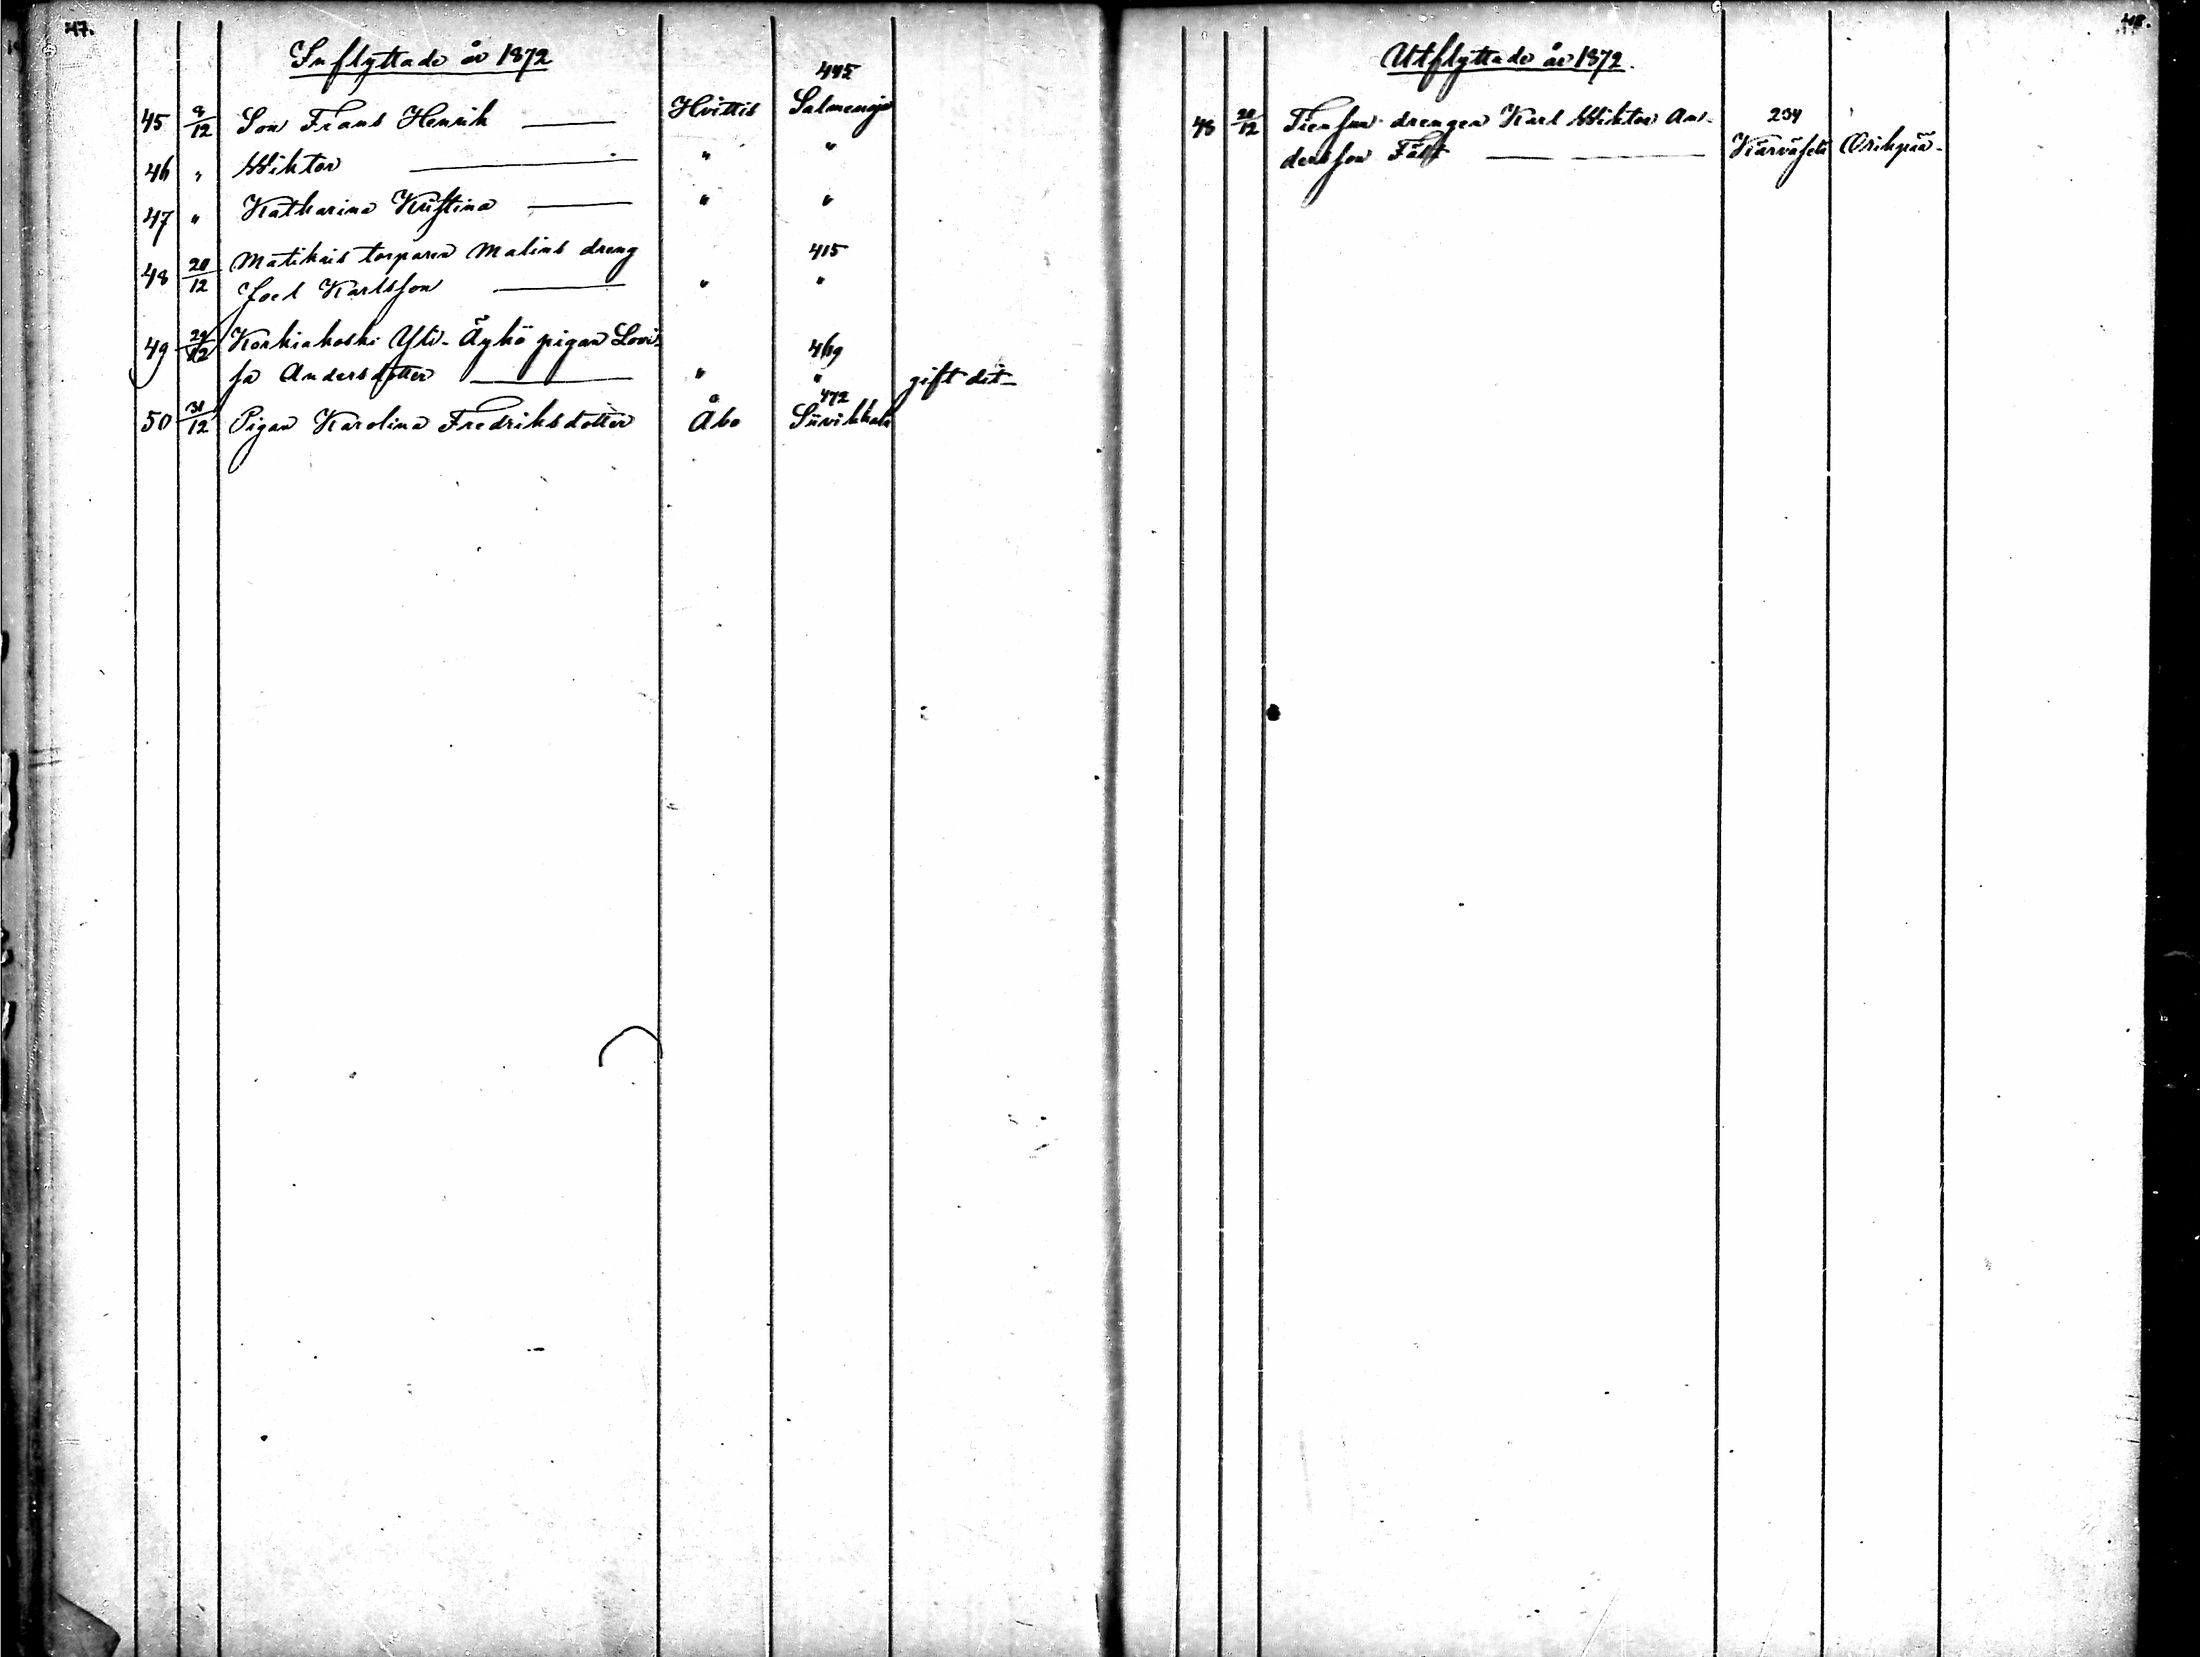 47.
Inflyttade år 1872
445
45 9/12 Son Frans Henrik — Hvittis Salmenoja
46 " Wiktor — " "
47 " Katharina Kristina — " "
48 20/12 Matikais torparen Malins dreng 415
Joel Karlsson — " "
49 29/12 Korkiakoski Yli-Äykö pigan Lovi- 469
sa Andersdotter — " " gift dit
472
50 31/12 Pigan Karolina Fredriksdotter Åbo Siivikkala
48.
Utflyttade år 1872.
48 20/12 drengen Karl Wiktor An- 234
dersson Fält — Karväselä Orihpää